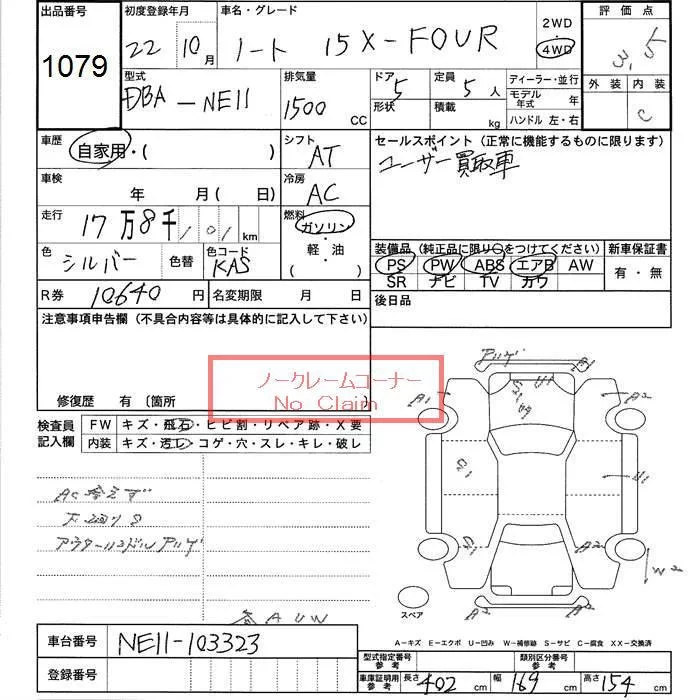 出品番号
1079
初度登録年月
22 10月
車名・グレード
ノート 15X-FOUR
2WD
4WD
評価点
3.5
外装 内装
C
型式
DBA-NE11
排気量
1500 CC
ドア 5
形状
定員 5人
積載 kg
ディーラー・並行
モデル年式 年
ハンドル 左・右
車歴
自家用・( )
シフト
AT
セールスポイント (正常に機能するものに限ります)
ユーザー買取車
車検 年 月( 日)
冷房
AC
走行 17万8千101km
燃料
ガソリン
・
軽・油
( )
色 シルバー 色替
色コード
KAS
装備品 (純正品に限り○をつけてください)
PS PW ABS エアB AW
SR ナビ TV カワ
新車保証書
有・無
R券 10640円
名変期限 月 日
後日品
注意事項申告欄 (不具合内容等は具体的に記入して下さい)
ノークレームコーナー
No Claim
修復歴 有 〔箇所
検査員
記入欄
FW キズ・飛石・ヒビ割・リペア跡・X要
内装 キズ・汚レ・コゲ・穴・スレ・キレ・破レ
下廻りS
アウターハンドルアリゲ
AUW
アリゲ
A1
U1
A2
A2
W2
A2
A2
スペア
A-キズ E-エクボ U-凹み W-補修跡 S-サビ C-腐食 XX-交換済
車台番号 NE11-103323
登録番号
型式指定番号
参考
類別区分番号
参考
車庫証明用
参考
長さ 402cm
幅 169cm
高さ 154cm